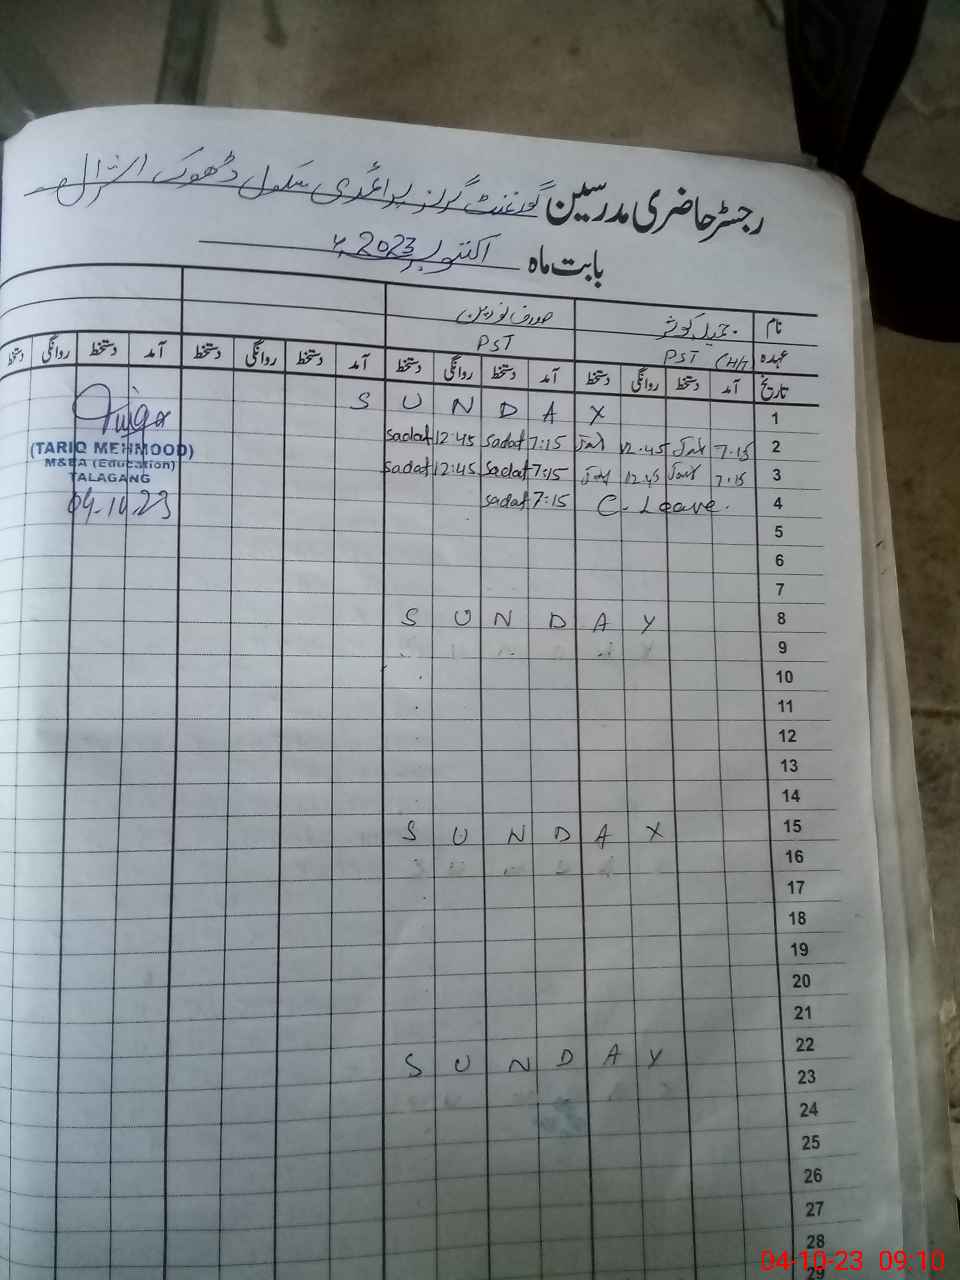 رجسٹر حاضری مدرسین گورنمنٹ گرلز پرائمری سکول ڈھوک
بابت ماہ اکتوبر 2023ء
نام جمیلہ کوثر صدف نورین
عہدہ PST (H/T PST
تاریخ آمد دستخط روانگی دستخط آمد دستخط روانگی دستخط آمد دستخط روانگی دستخط آمد دستخط روانگی دستخط
1 S U N D A Y
2 7:15 12:45 7:15 Sadaf 12:45 Sadaf
3 7:15 12:45 7:15 Sadaf 12:45 Sadaf
4 C. Leave. 7:15 Sadaf
(TARIQ MEHMOOD)
M&EA (Education)
TALAGANG
04-10-23
5
6
7
8 S U N D A Y
9
10
11
12
13
14
15 S U N D A Y
16
17
18
19
20
21
22 S U N D A Y
23
24
25
26
27
28
29
04-10-23 09:10